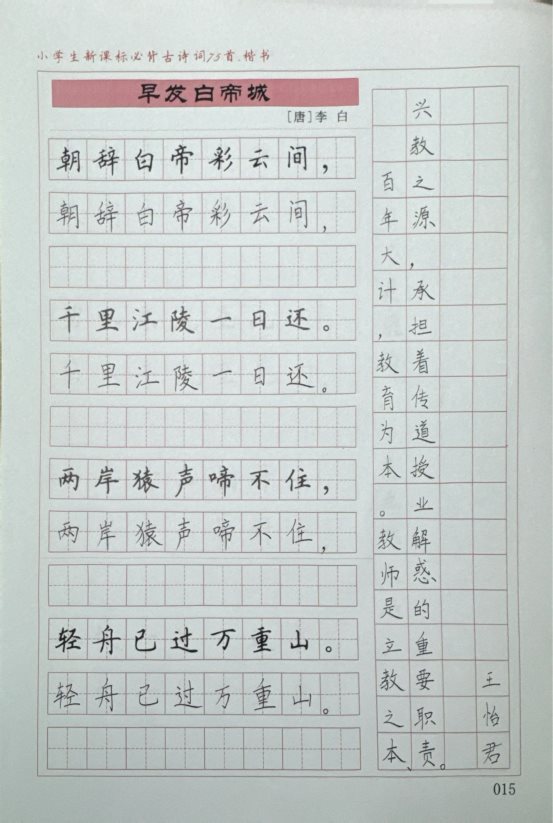 小学生新课标必背古诗词75首.楷书
早发白帝城
[唐]李白
朝辞白帝彩云间，
朝辞白帝彩云间，
千里江陵一日还。
千里江陵一日还。
两岸猿声啼不住，
两岸猿声啼不住，
轻舟已过万重山。
轻舟已过万重山。
百年大计，教育为本。教师是立教之本、
兴教之源，承担着传道授业解惑的重要职责。
王怡君
015